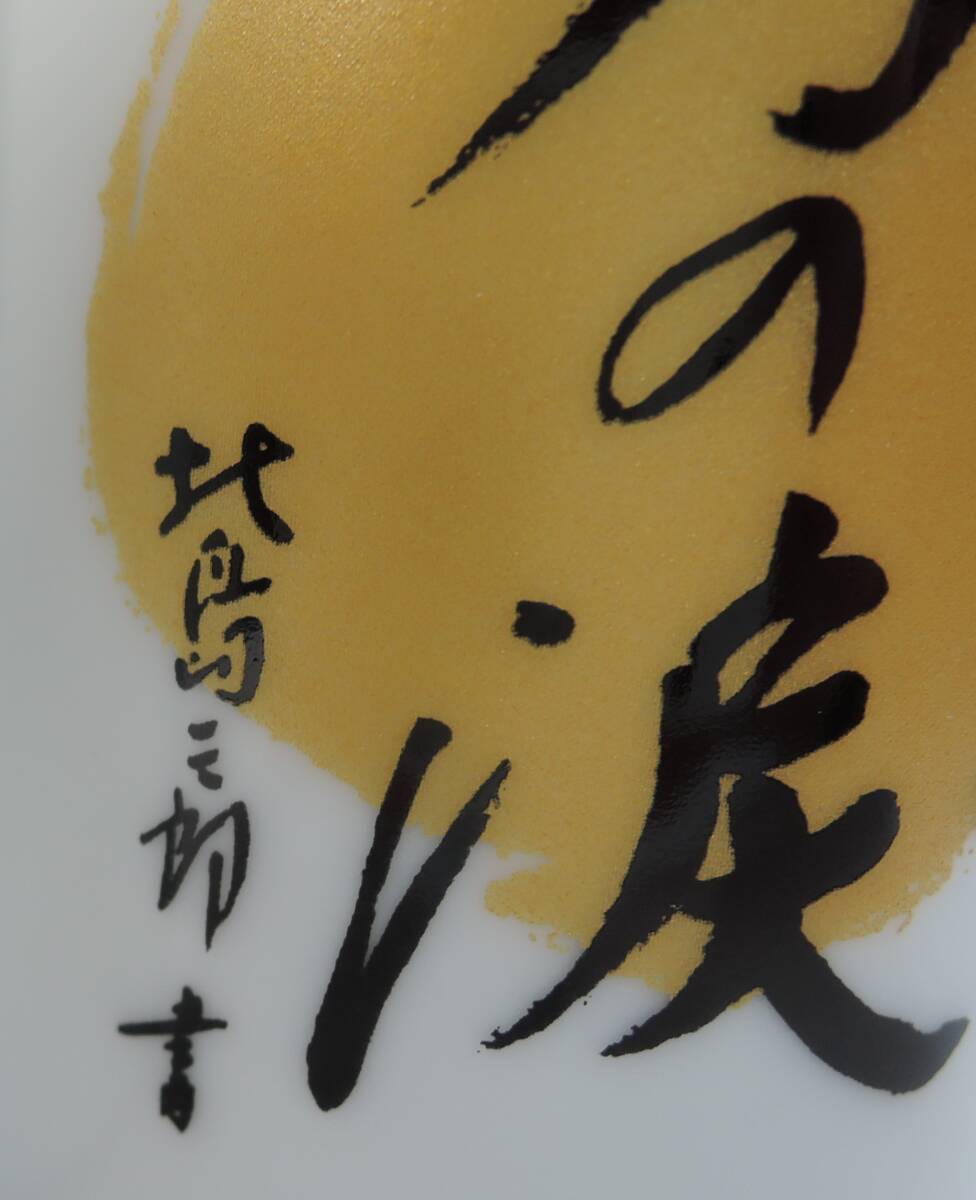 の涙
北島三郎 書